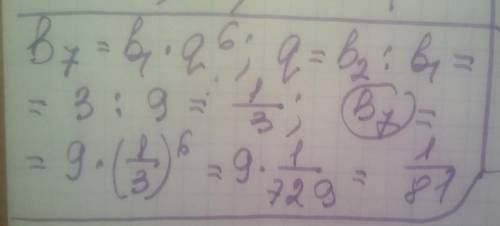 в₇ = в₁ · q⁶; q = в₂ : в₁ =
= 3 : 9 = 1/3; в₇ =
= 9 · (1/3)⁶ = 9 · 1/729 = 1/81